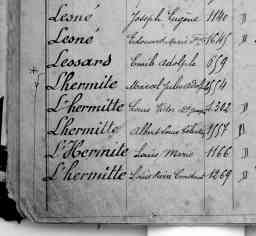 Lesné Joseph Eugène 1140 D
Lesné Edouard Marie 1645 D
Lessard Emile Adolphe 859
Lhermite Marcel Jules 1554
L'hermitte Louis Victor 1342 D
Lhermitte Albert Louis 1557 D
L'Hermite Louis Marie 1166 D
L'hermitte Louis Constant 1269 D